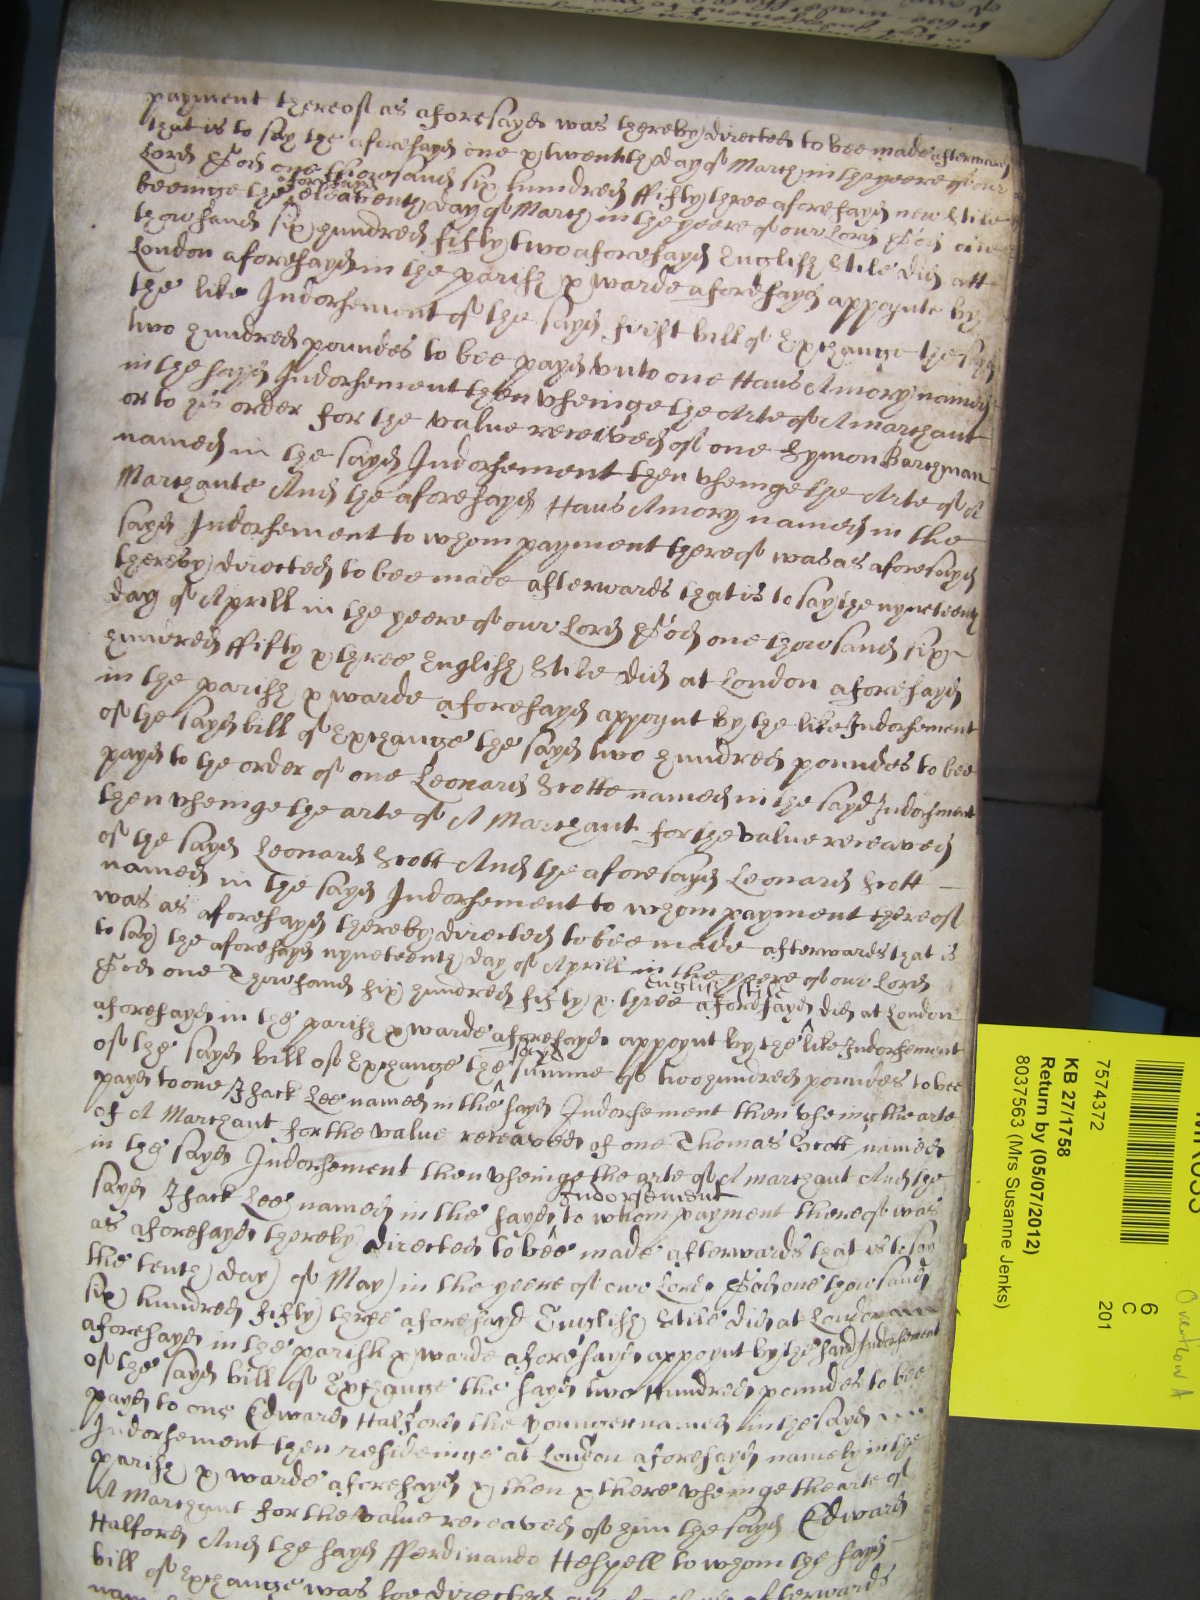 payment thereof as aforesayd was thereby directed to bee made afterwards
that is to say the aforesayd one & twentith day of March in the yeere of our
Lord God one thowsand six hundred fifty three aforesayd new Stile
beeinge the aforesayd eleaventh day of March in the yeere of our Lord God one
thowsand six hundred fifty two aforesayd English Stile did att
London aforesayd in the parish & warde aforesayd appoynte by
the like Indorsement of the sayd first bill of Exchange the sayd
two hundred poundes to bee payd unto one Hans Amory named
in the sayd Indorsement then useinge the Arte of A marchant
or to his order for the value received of one Symon Barchman
named in the sayd Indorsement then useinge the Arte of A
Marchante And the aforesayd Hans Amory named in the
sayd Indorsement to whom payment thereof was as aforesayd
thereby directed to bee made afterwards that is to say the nyneteenth
day of Aprill in the yeere of our Lord God one thowsand six
hundred fifty & three English Stile did at London aforesayd
in the parish & warde aforesayd appoynt by the like Indorsement
of the sayd bill of Exchange the sayd two hundred poundes to bee
payd to the order of one Leonard Scotte named in the sayd Indorsment
then useinge the arte of A Marchant for the value receaved
of the sayd Leonard Scott And the aforesayd Leonard Scott
named in the sayd Indorsement to whom payment thereof
was as aforesayd thereby directed to bee made afterwards that is
to say the aforesayd nyneteenth day of Aprill in the yeere of our Lord
God one Thowsand six hundred fifty & three English Stile aforesayd did at London
aforesayd in the parish & warde aforesayd appoynt by the like Indorsement
of the sayd bill of Exchange the sayd summe of two hundred poundes to bee
payd to one Isack Lee named in the sayd Indorsement then useing the arte
of A Marchant for the value receaved of one Thomas Scott named
in the sayd Indorsement then useinge the arte of A marchant And the
sayd Isack Lee named in the sayd Indorsement to whom payment thereof was
as aforesayd thereby directed to bee made afterwards that is to say
the tenth day of May in the yeere of our Lord God one thowsand
six hundred fifty three aforesayd English Stile did at London
aforesayd in the parish & warde aforesayd appoynt by the Indorsement
of the sayd bill of Exchange the sayd two Hundred poundes to bee
payd to one Edward Halford the younger named in the sayd
Indorsement then resideinge at London aforesayd namely in the
parish & warde aforesayd & then & there useinge the arte of
A Marchant for the value receaved of him the sayd Edward
Halford And the sayd Fferdinando Hespell to whom the sayd
bill of Exchange was soe directed afterwards
7574372
KB 27/1758
Return by (05/07/2012)
8037563 (Mrs Susanne Jenks)
6
C
201